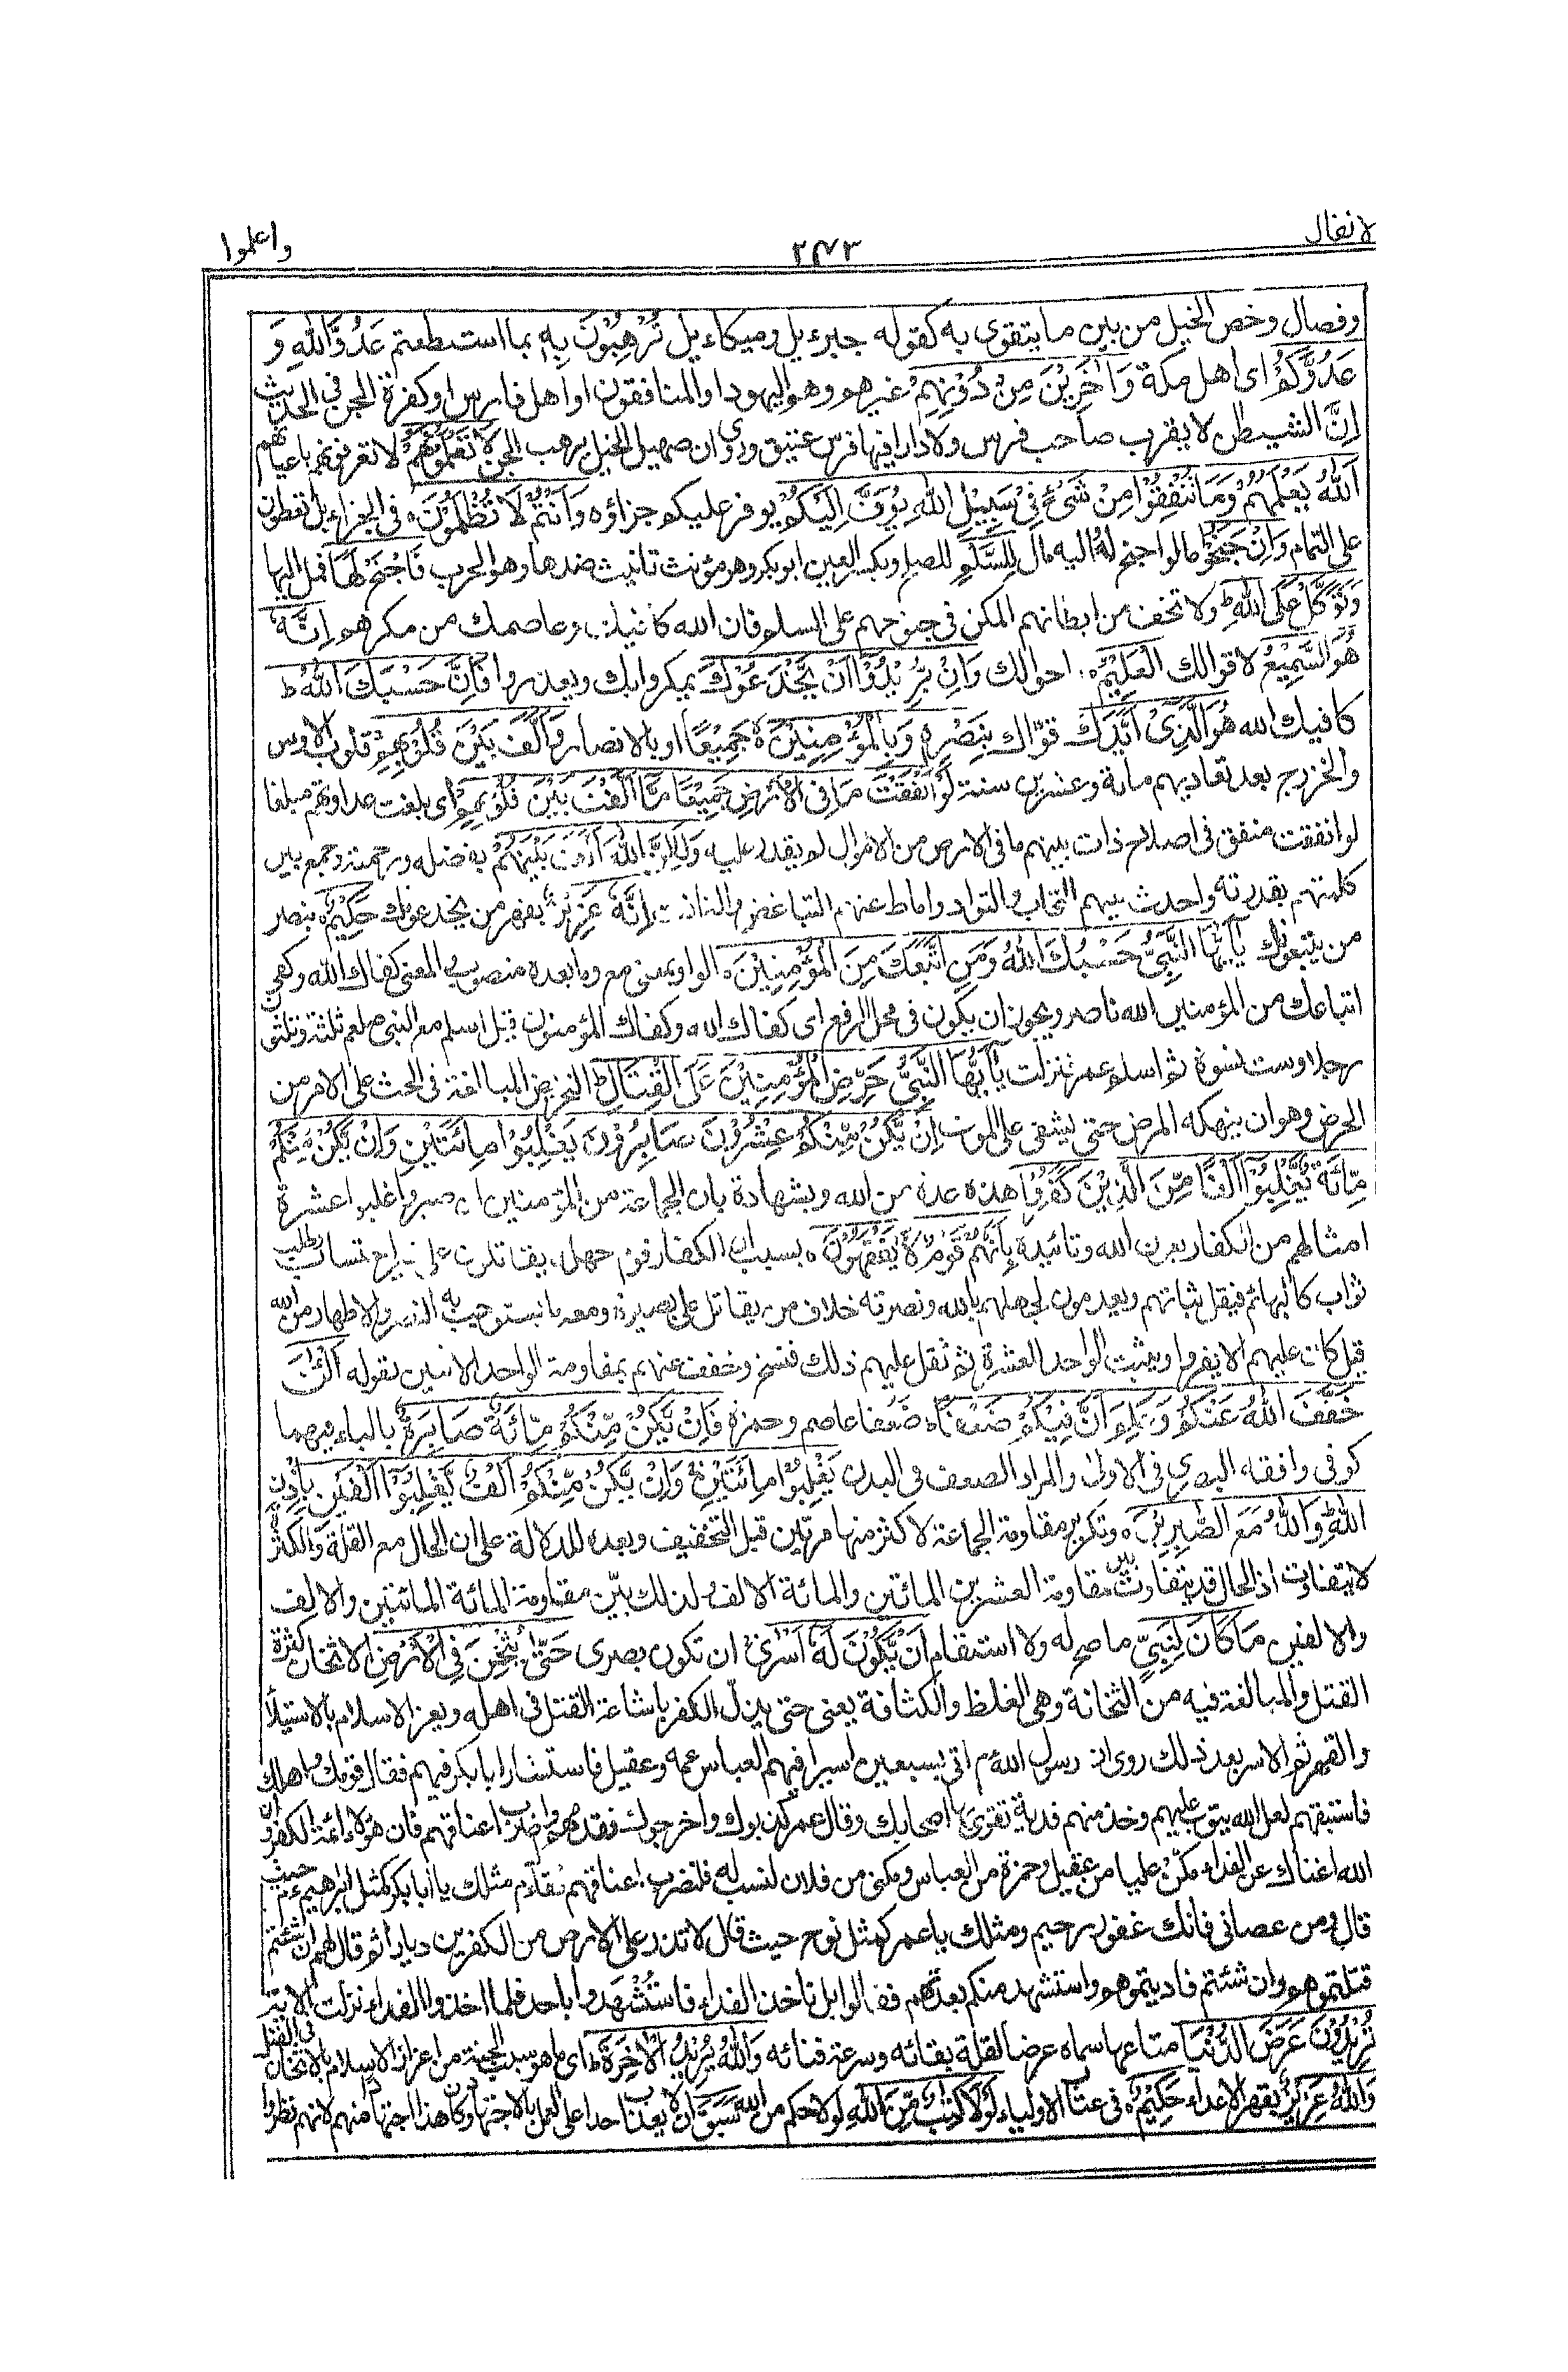 لانفال
٢٤٣
واعلموا
وفصال وخص الخيل من بين ما يتقوى به كقوله جبرءيل وميكاءيل تُرْهِبُوْنَ بِهٖ بما استطعتم عَدُوَّ اللّٰهِ وَ
عَدُوَّكُمْ اى اهل مكة وَاٰخَرِيْنَ مِنْ دُوْنِهِمْ غيرهم وهم اليهود او المنافقون او اهل فارس او كفرة الجن فى الحديث
اِنَّ الشيطٰن لا يقرب صاحب فرس ولا دارا فيها فرس عتيق وروى ان صهيل الخيل يرهب الجن لَا تَعْلَمُوْنَهُمْ لا تعرفونهم باعيانهم
اَللّٰهُ يَعْلَمُهُمْ وَمَا تُنْفِقُوْا مِنْ شَىْءٍ فِىْ سَبِيْلِ اللّٰهِ يُوَفَّ اِلَيْكُمْ يوفر عليكم جزاؤه وَاَنْتُمْ لَا تُظْلَمُوْنَ فى الجزاء بل تعطون
على التمام وَاِنْ جَنَحُوْا مالوا جنح له اليه مال لِلسَّلْمِ للصلح وبكسر العين ابوبكر وهو مؤنث تانيث ضدها وهو الحرب فَاجْنَحْ لَهَا فمل اليها
وَتَوَكَّلْ عَلَى اللّٰهِ ولا تخف من ابطانهم المكر فى جنوحهم على السلم فان الله كافيك وعاصمك من مكرهم اِنَّهٗ
هُوَ السَّمِيْعُ لاقوالك الْعَلِيْمُ احوالك وَاِنْ يُّرِيْدُوْا اَنْ يَّخْدَعُوْكَ يمكروا بك ويغدروا فَاِنَّ حَسْبَكَ اللّٰهُ ط
كافيك الله هُوَ الَّذِىْ اَيَّدَكَ قوّاك بِنَصْرِهٖ وَبِالْمُؤْمِنِيْنَ جَمِيْعًا او بالانصار وَاَلَّفَ بَيْنَ قُلُوْبِهِمْ قلوب الاوس
والخزرج بعد تعاديهم مائة وعشرين سنة لَوْ اَنْفَقْتَ مَا فِى الْاَرْضِ جَمِيْعًا مَّا اَلَّفْتَ بَيْنَ قُلُوْبِهِمْ اى بلغت عداوتهم مبلغا
لو انفقت منفق فى اصلاح ذات بينهم ما فى الارض من الاموال لم يقدر عليه وَلٰكِنَّ اللّٰهَ اَلَّفَ بَيْنَهُمْ بفضله ورحمته وجمع بين
كلمتهم بقدرته واحدث بينهم التحاب والتواد واماط عنهم التباغض والتماقت اِنَّهٗ عَزِيْزٌ يقهر من يخدعونك حَكِيْمٌ ينصر
من يتبعونك يٰاَيُّهَا النَّبِىُّ حَسْبُكَ اللّٰهُ وَمَنِ اتَّبَعَكَ مِنَ الْمُؤْمِنِيْنَ الواو بمعنى مع وما بعده منصوب والمعنى كفاك الله وكفى
اتباعك من المؤمنين الله ناصرا ويجوز ان يكون فى محل الرفع اى كفاك الله وكفاك المؤمنون قيل اسلم مع النبى صلعم ثلثة وثلثون
رجلا وست نسوة ثم اسلم عمر فنزلت يٰاَيُّهَا النَّبِىُّ حَرِّضِ الْمُؤْمِنِيْنَ عَلَى الْقِتَالِ التحريض المبالغة فى الحث على الامر من
الحرض وهو ان ينهكه المرض حتى يشفى على الموت اِنْ يَّكُنْ مِّنْكُمْ عِشْرُوْنَ صَابِرُوْنَ يَغْلِبُوْا مِائَتَيْنِ وَاِنْ يَّكُنْ مِّنْكُمْ
مِّائَةٌ يَّغْلِبُوْا اَلْفًا مِّنَ الَّذِيْنَ كَفَرُوْا هذه عدة من الله وبشهادة بان الجماعة من المؤمنين ان صبروا غلبوا عشرة
امثالهم من الكفار بعون الله وتائيده بِاَنَّهُمْ قَوْمٌ لَّا يَفْقَهُوْنَ بسبب ان الكفار قوم جهلة يقاتلون على غير احتساب وطلب
ثواب كالبهائم فيقل ثباتهم ويعدمون لجهلهم بالله ونصرته خلاف من يقاتل على بصيرة ومعه ما يستوجب به النصر والاظهار من الله
قيل كان عليهم الا يفروا ويثبت الواحد للعشرة ثم ثقل عليهم ذلك فنسخ وخفف عنهم بمقاومة الواحد الاثنين بقوله اَلْـٰٔنَ
خَفَّفَ اللّٰهُ عَنْكُمْ وَعَلِمَ اَنَّ فِيْكُمْ ضَعْفًا ضَعفا عاصم وحمزة فَاِنْ يَّكُنْ مِّنْكُمْ مِّائَةٌ صَابِرَةٌ بالياء فيهما
كوفى وافقه البصرى فى الاولى والمراد الضعف فى البدن يَّغْلِبُوْا مِائَتَيْنِ وَاِنْ يَّكُنْ مِّنْكُمْ اَلْفٌ يَّغْلِبُوْا اَلْفَيْنِ بِاِذْنِ
اللّٰهِ وَاللّٰهُ مَعَ الصّٰبِرِيْنَ وتكرير مقاومة الجماعة لاكثر منها مرتين قبل التخفيف وبعده للدلالة على ان الحال مع القلة والكثرة
لا يتفاوت اذ الحال قد يتفاوت بين مقاومة العشرين المائتين والمائة الالف ولذلك بيّن مقاومة المائة المائتين والالف
والالفين مَا كَانَ لِنَبِىٍّ ما صح له ولا استقام اَنْ يَّكُوْنَ لَهٗ اَسْرٰى ان تكون بصرى حَتّٰى يُثْخِنَ فِى الْاَرْضِ الاثخان كثرة
القتل والمبالغة فيه من الثخانة وهى الغلظ والكثافة يعنى حتى يذلّ الكفر باشاعة القتل فى اهله ويعز الاسلام بالاستيلاء
والقهر ثم الاسر بعد ذلك روى ان رسول الله م اتى بسبعين اسيرا فيهم العباس عمه وعقيل فاستشار ابا بكر فيهم فقال قومك واهلك
فاستبقهم لعل الله يتوب عليهم وخذ منهم فدية تقوى بها اصحابك وقال عمر كذبوك واخرجوك فقدمهم واضرب اعناقهم فان هؤلاء ائمة الكفر وان
الله اغناك عن الفداء مكّن عليا من عقيل وحمزة من العباس ومكنى من فلان لنسب له فلنضرب اعناقهم فقال م مثلك يا ابا بكر كمثل ابرهيم م حيث
قال ومن عصانى فانك غفور رحيم ومثلك يا عمر كمثل نوح حيث قال لا تذر على الارض من الكفرين ديارا ثم قال لهم ان شئتم
قتلتموهم وان شئتم فاديتموهم واستشهد منكم بعدتهم فقالوا بل ناخذ الفداء فاستشهدوا باحد فلما اخذوا الفداء نزلت الاية
تُرِيْدُوْنَ عَرَضَ الدُّنْيَا متاعها سماه عرضا لقلة بقائه وسرعة فنائه وَاللّٰهُ يُرِيْدُ الْاٰخِرَةَ اى ما هو سبب الجنة من اعزاز الاسلام بالاثخان فى القتل
وَاللّٰهُ عَزِيْزٌ يقهر الاعداء حَكِيْمٌ فى عتاب الاولياء لَوْلَا كِتٰبٌ مِّنَ اللّٰهِ لولا حكم من الله سَبَقَ ان لا يعذب احدا على العمل بالاجتهاد وكان هذا اجتهادا منهم لانهم نظروا